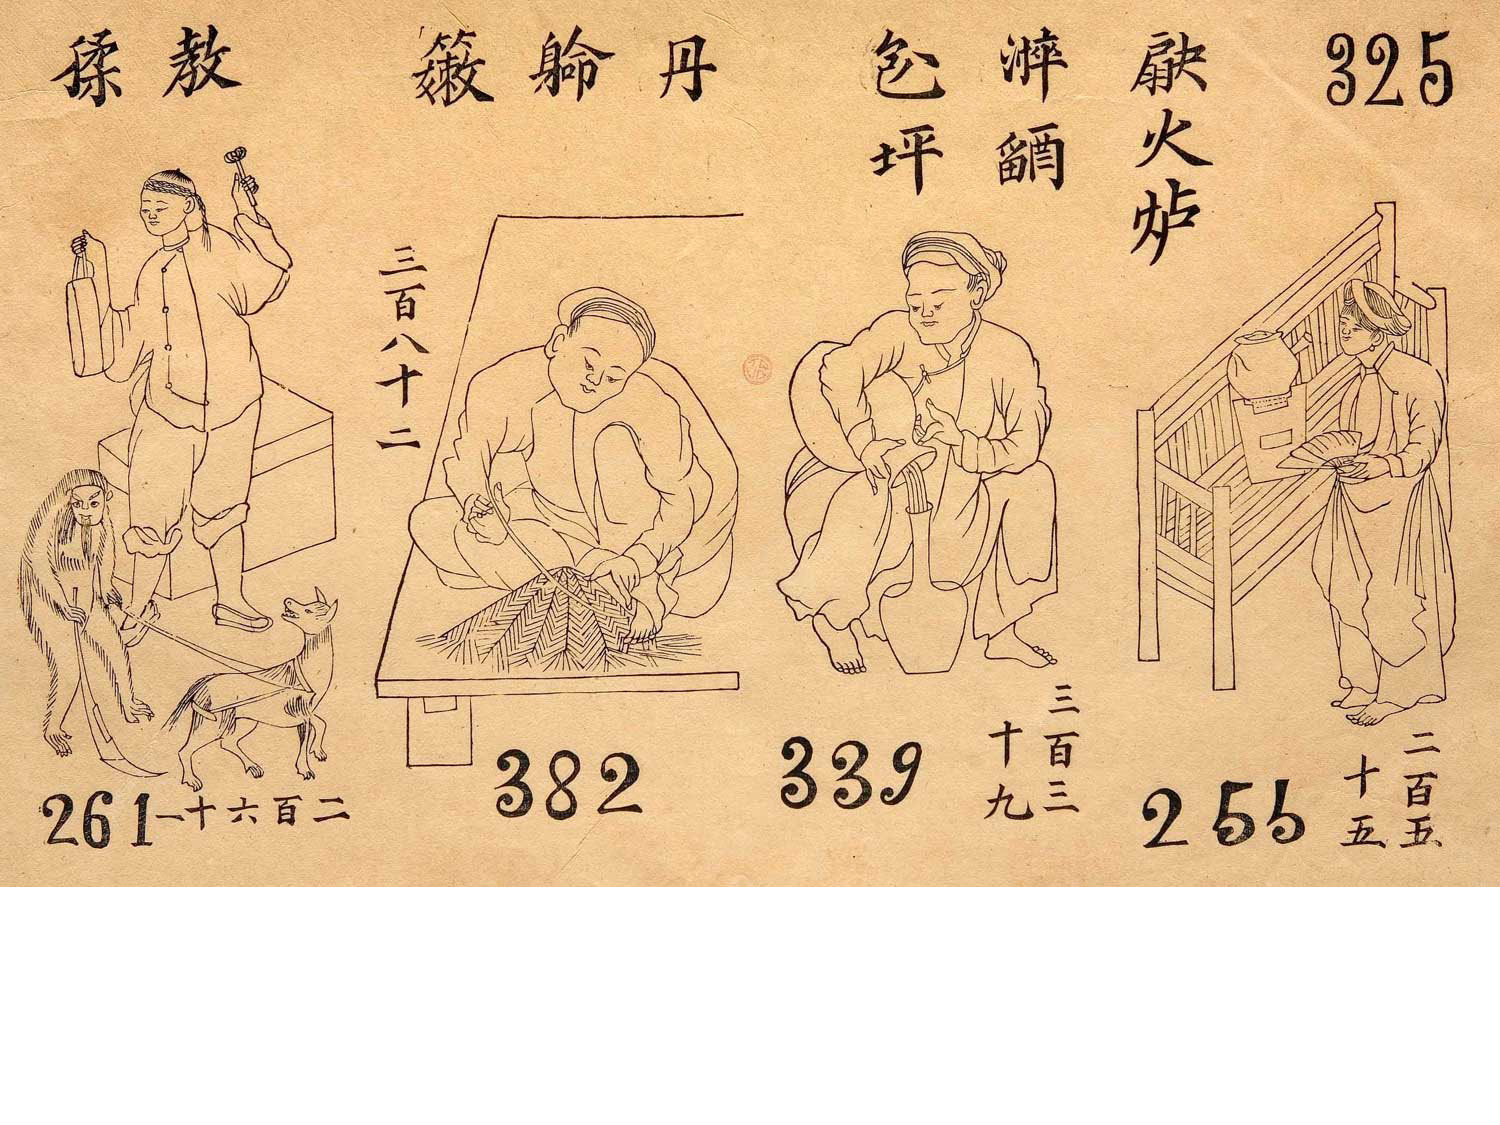 325
火炉
𨢇
坪
丹
教猱
二百五十五
255
三百三十九
339
三百八十二
382
二百六十一
261